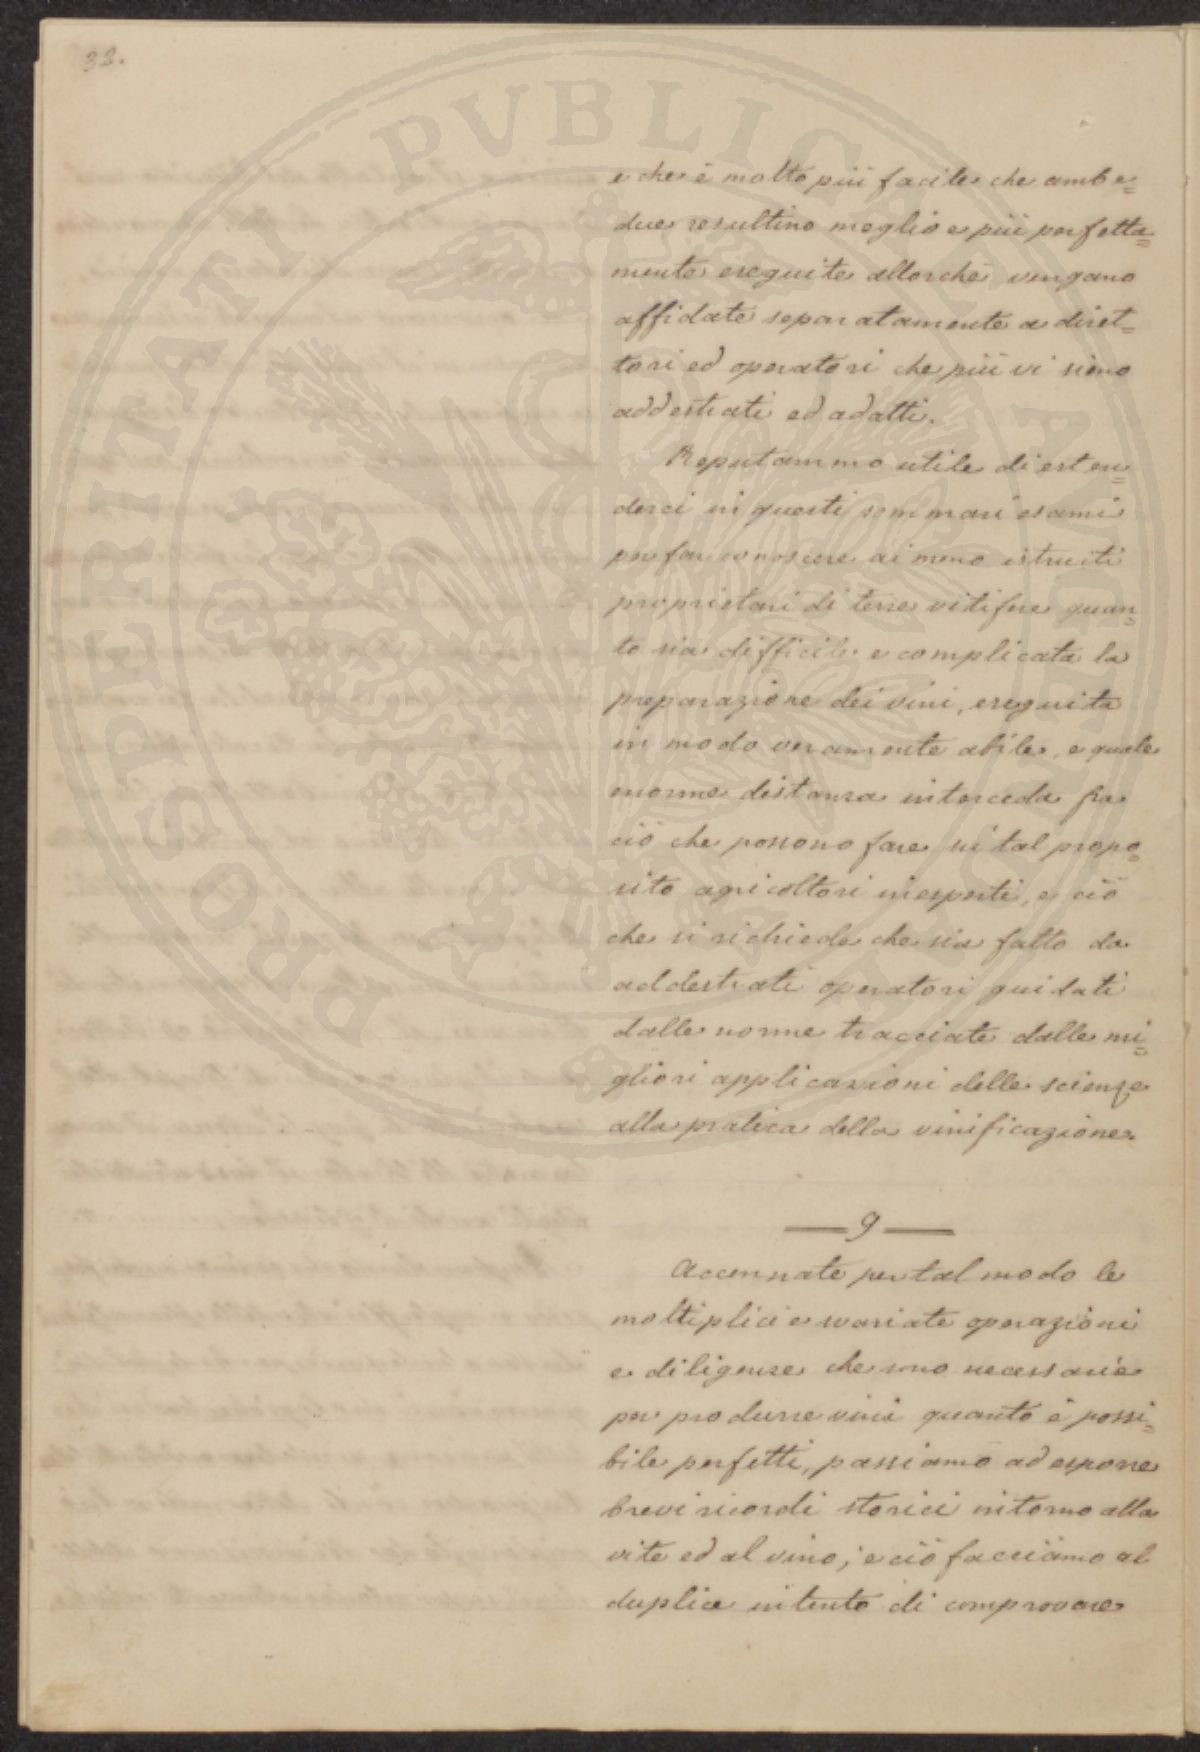 32.
e che è molto più facile che ambe=
due resultino meglio e più perfetta=
mente eseguite allorchè vengano
affidate separatamente a diret=
tori ed operatori che più vi sieno
addestrati ed adatti.
Reputammo utile di esten=
derci in questi sommari esami
per far conoscere ai meno istruiti
proprietari di terre vitifere quan=
to sia difficile e complicata la
preparazione dei vini, eseguita
in modo veramente abile, e quale
enorme distanza interceda fra
ciò che possono fare in tal propo=
sito agricoltori inesperti, e ciò
che si richiede che sia fatto da
addestrati operatori guidati
dalle norme tracciate dalle mi=
gliori applicazioni delle scienze
alla pratica della vinificazione.
— 9 —
Accennate per tal modo le
moltiplici e svariate operazioni
e diligenze che sono necessarie
per produrre vini quanto è possi=
bile perfetti, passiamo ad esporre
brevi ricordi storici intorno alla
vite ed al vino; e ciò facciamo al
duplice intento di comprovare
PROSPERITATI PVBLIC AVGENDAE